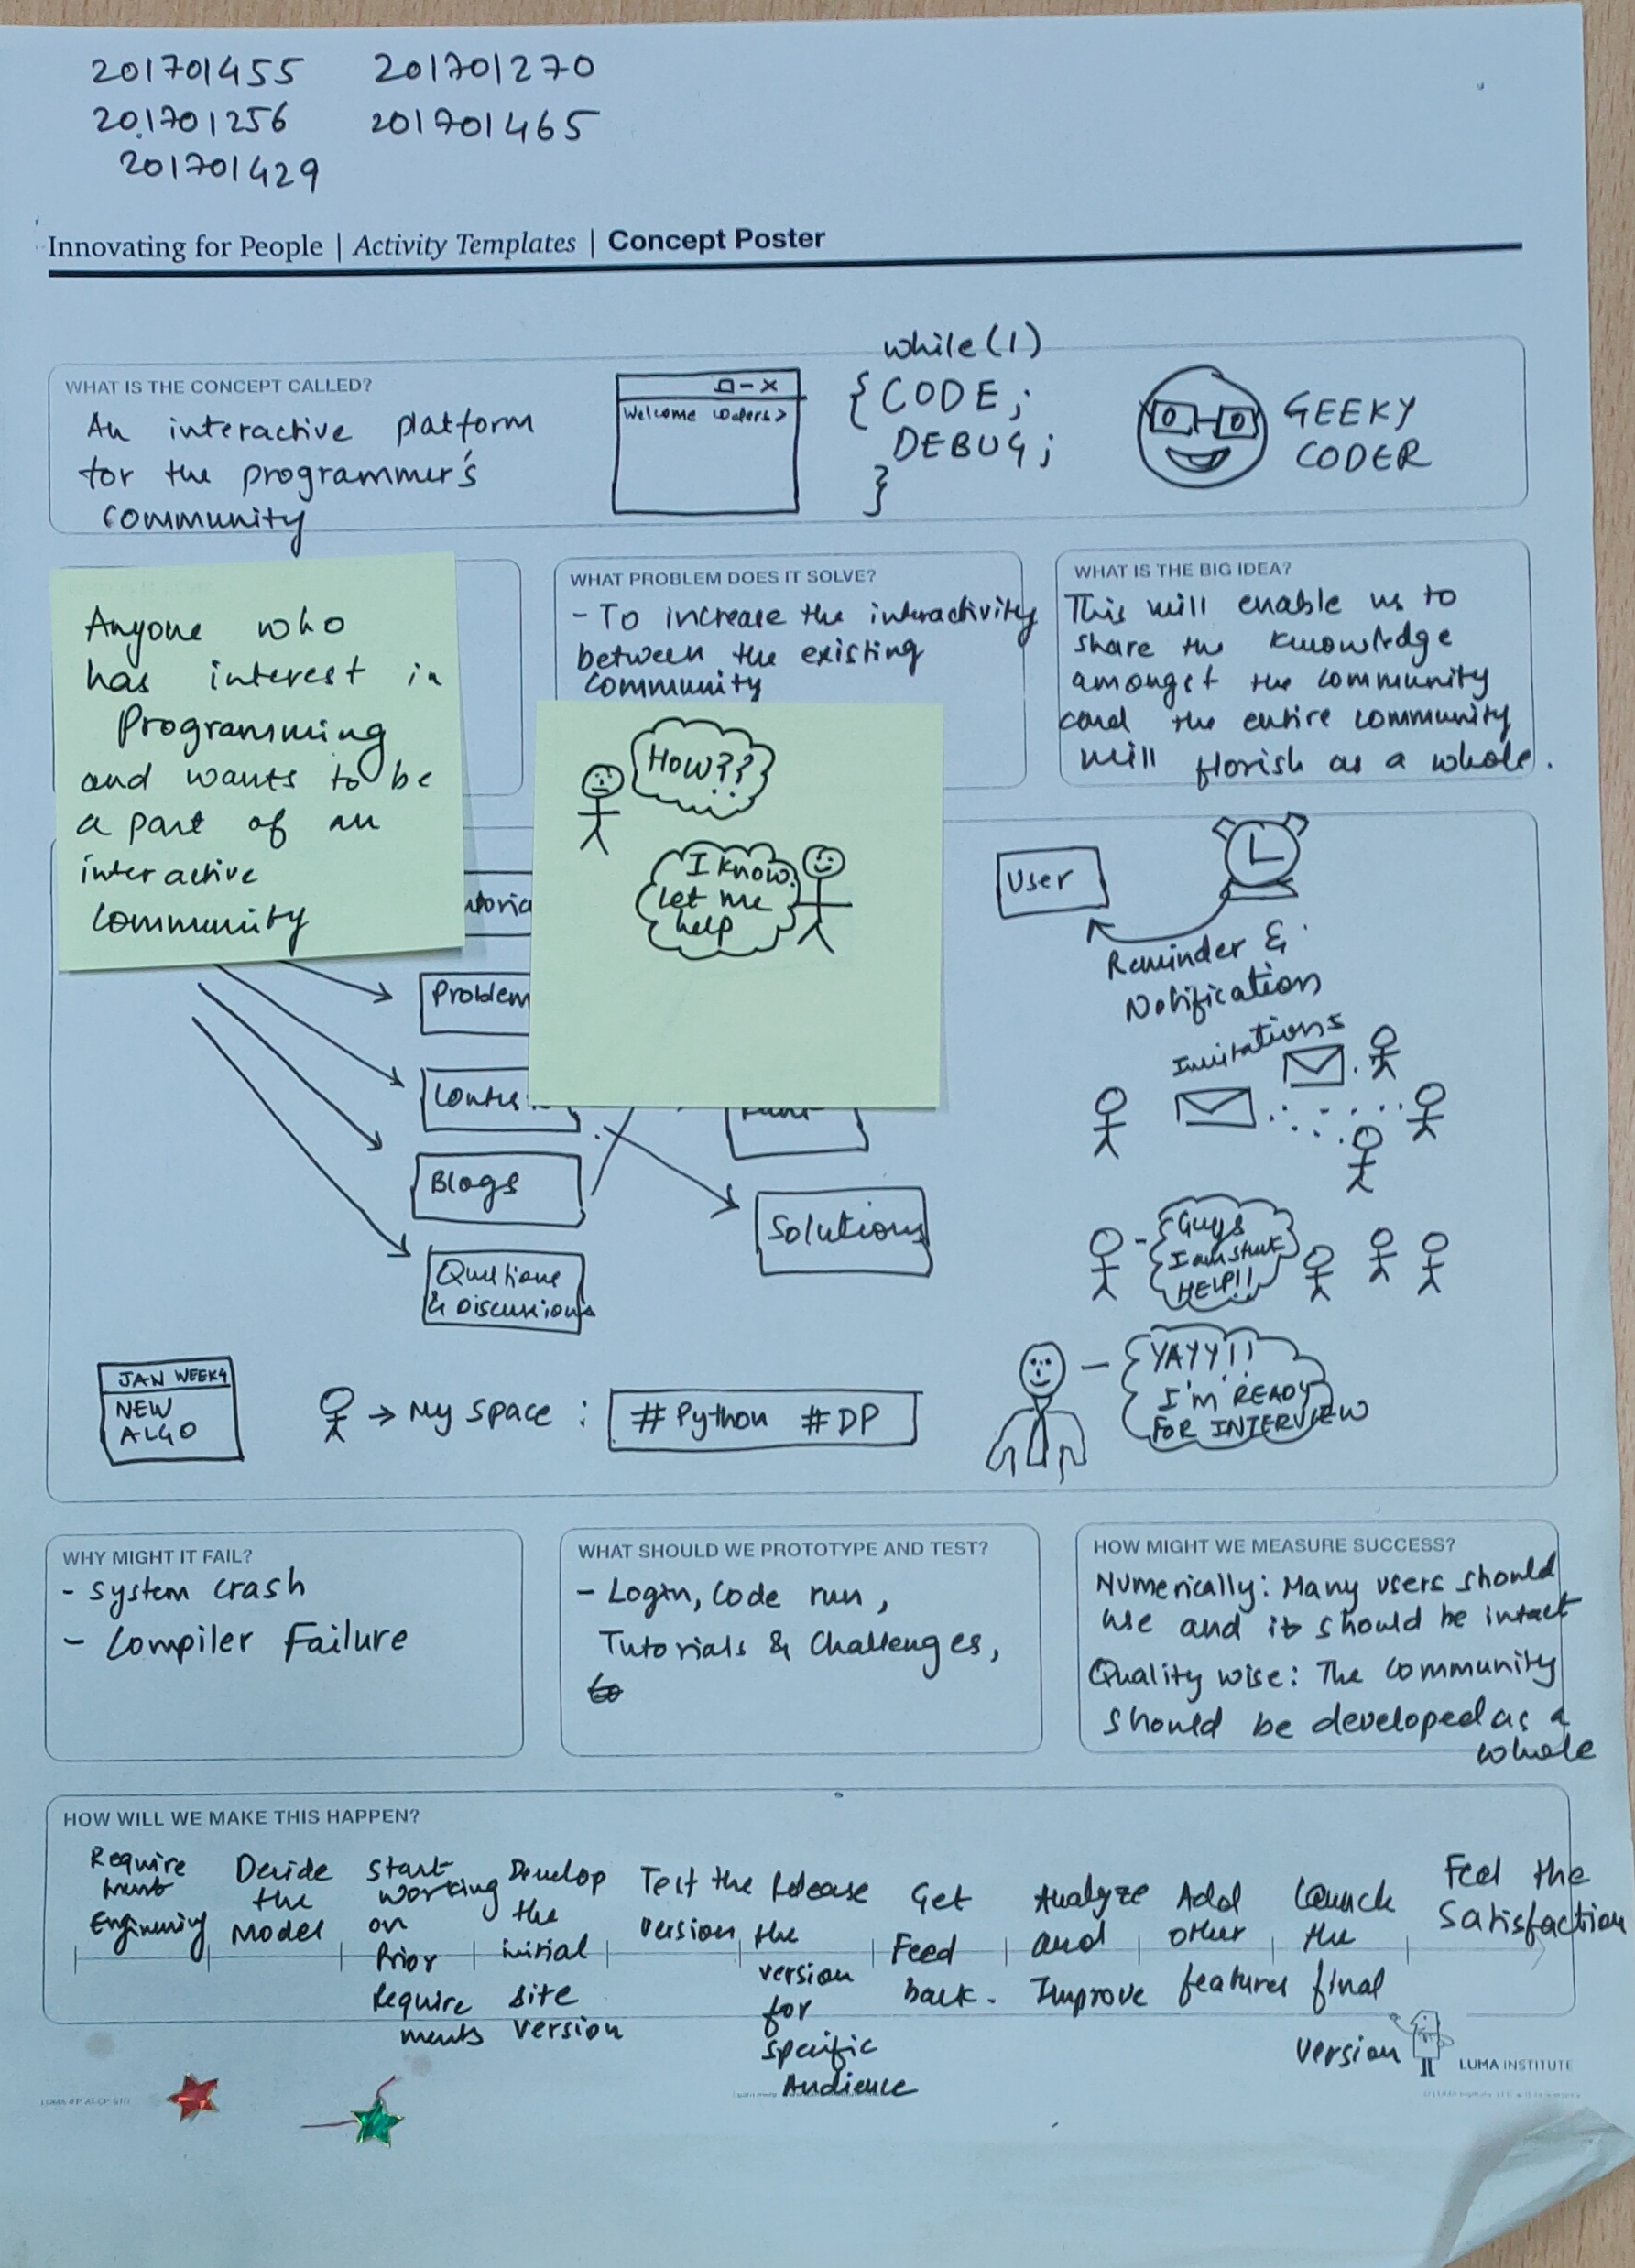 201701455 201701270
201701256 201701465
201701429
Innovating for People | Activity Templates | Concept Poster
WHAT IS THE CONCEPT CALLED?
An interactive platform
for the programmer's
community
Welcome coders>
while(1)
{CODE;
DEBUG;
}
GEEKY
CODER
Anyone who
has interest in
Programming
and wants to be
a part of an
interactive
community
WHAT PROBLEM DOES IT SOLVE?
- To increase the interactivity
between the existing
community
How??
I know.
let me
help
WHAT IS THE BIG IDEA?
This will enable us to
share the knowledge
amongst the community
and the entire community
will florish as a whole.
Problem
Blogs
Questions
& Discussions
Solutions
User
Reminder &
Notification
Invitations
Guys
I am stuck
HELP!!
YAYY!!
I'M READY
FOR INTERVIEW
JAN WEEK4
NEW
ALGO
→ My space : #Python #DP
WHY MIGHT IT FAIL?
- System crash
- Compiler Failure
WHAT SHOULD WE PROTOTYPE AND TEST?
- Login, Code run,
Tutorials & Challenges,
HOW MIGHT WE MEASURE SUCCESS?
Numerically: Many users should
use and it should be intact
Quality wise: The community
should be developed as a
whole
HOW WILL WE MAKE THIS HAPPEN?
Require
ment
Engineering
Decide
the
Model
Start
working
on
Prior
Require
ments
Develop
the
initial
site
version
Test the
version
Release
the
version
for
specific
Audience
Get
Feed
back.
Analyze
and
Improve
Add
other
features
Launch
the
final
version
Feel the
Satisfaction
LUMA INSTITUTE